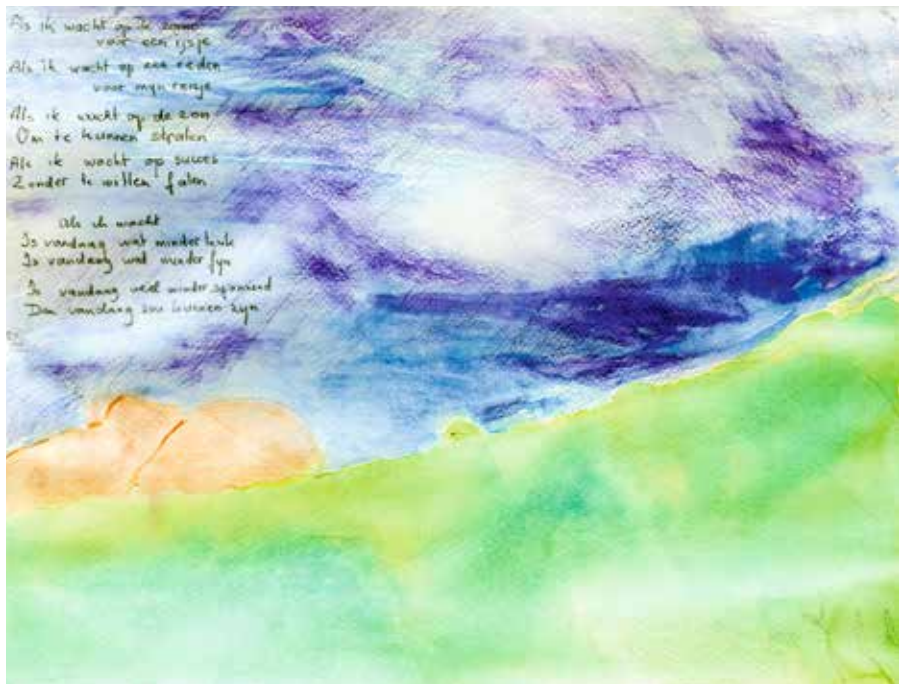 Als ik wacht op de zomer
voor een ijsje
Als ik wacht op een reden
voor mijn reisje
Als ik wacht op de zon
Om te kunnen stralen
Als ik wacht op succes
Zonder te willen falen
Als ik wacht
Is vandaag wat minder leuk
Is vandaag wat minder fijn
Is vandaag veel minder spannend
Dan vandaag zou kunnen zijn